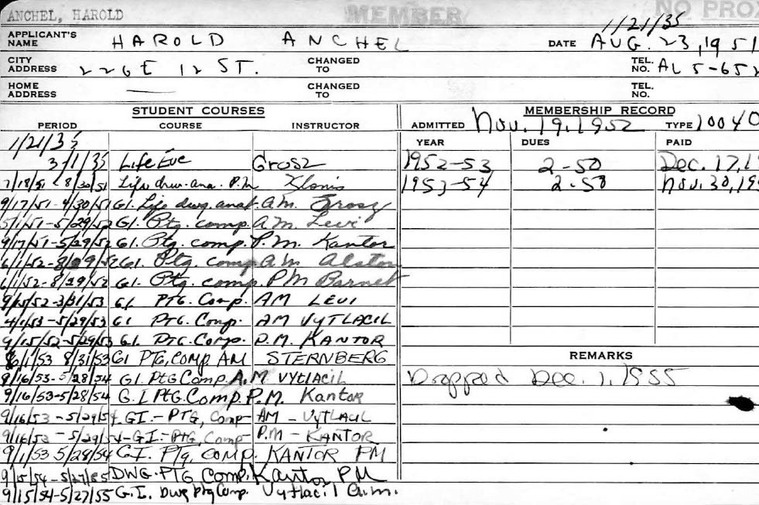 ANCHEL, HAROLD
MEMBER
NO PROX
1/21/35
APPLICANT'S NAME HAROLD ANCHEL DATE AUG. 23, 1951
CITY ADDRESS 226 E 12 ST. CHANGED TO TEL. NO. AL 5-652
HOME ADDRESS — CHANGED TO TEL. NO.
STUDENT COURSES
PERIOD COURSE INSTRUCTOR
1/21/35
3/1/35 Life Eve Grosz
7/18/51 - 8/30/51 Life drw. ana. P.M.
9/17/51 - 4/30/51 GI. Life dwg. anat. A.M. Grosz
5/1/51-5/29/52 GI. Ptg. comp. A.M. Levi
9/17/51-5/29/52 GI. Ptg. comp. P.M. Kantor
6/1/52-8/29/52 GI. Ptg. comp. A.M. Alston
6/1/52-8/29/52 GI. Ptg. comp. P.M. Barnet
9/15/52-3/31/53 GI PTG. Comp. AM LEVI
4/1/53-5/29/53 GI PTG. Comp. AM VYTLACIL
9/15/52-5/29/53 GI PTG. Comp. P.M. KANTOR
6/1/53 8/31/53 GI PTG, COMP AM STERNBERG
9/16/53-5/28/54 GI. PTG COMP A.M VYTLACIL
9/16/53-5/28/54 G.I. PTG COMP. P.M. Kantor
9/16/53-5/29/54 G.I.-PTG, Comp AM - VYTLACIL
9/16/53-5/29/54 G.I.-PTG, Comp P.M - KANTOR
9/1/53 5/28/54 G.I. Ptg. COMP. KANTOR PM
9/15/54-5/27/55 DWG. PTG COMP. Kantor PM
9/15/54-5/27/55 G.I. Dwg Ptg Comp. Vytlacil a.m.
MEMBERSHIP RECORD
ADMITTED Nov. 19, 1952 TYPE 10040
YEAR DUES PAID
1952-53 2-50 Dec. 17, 1
1953-54 2.50 Nov. 30, 19
REMARKS
Dropped Dec. 1, 1955